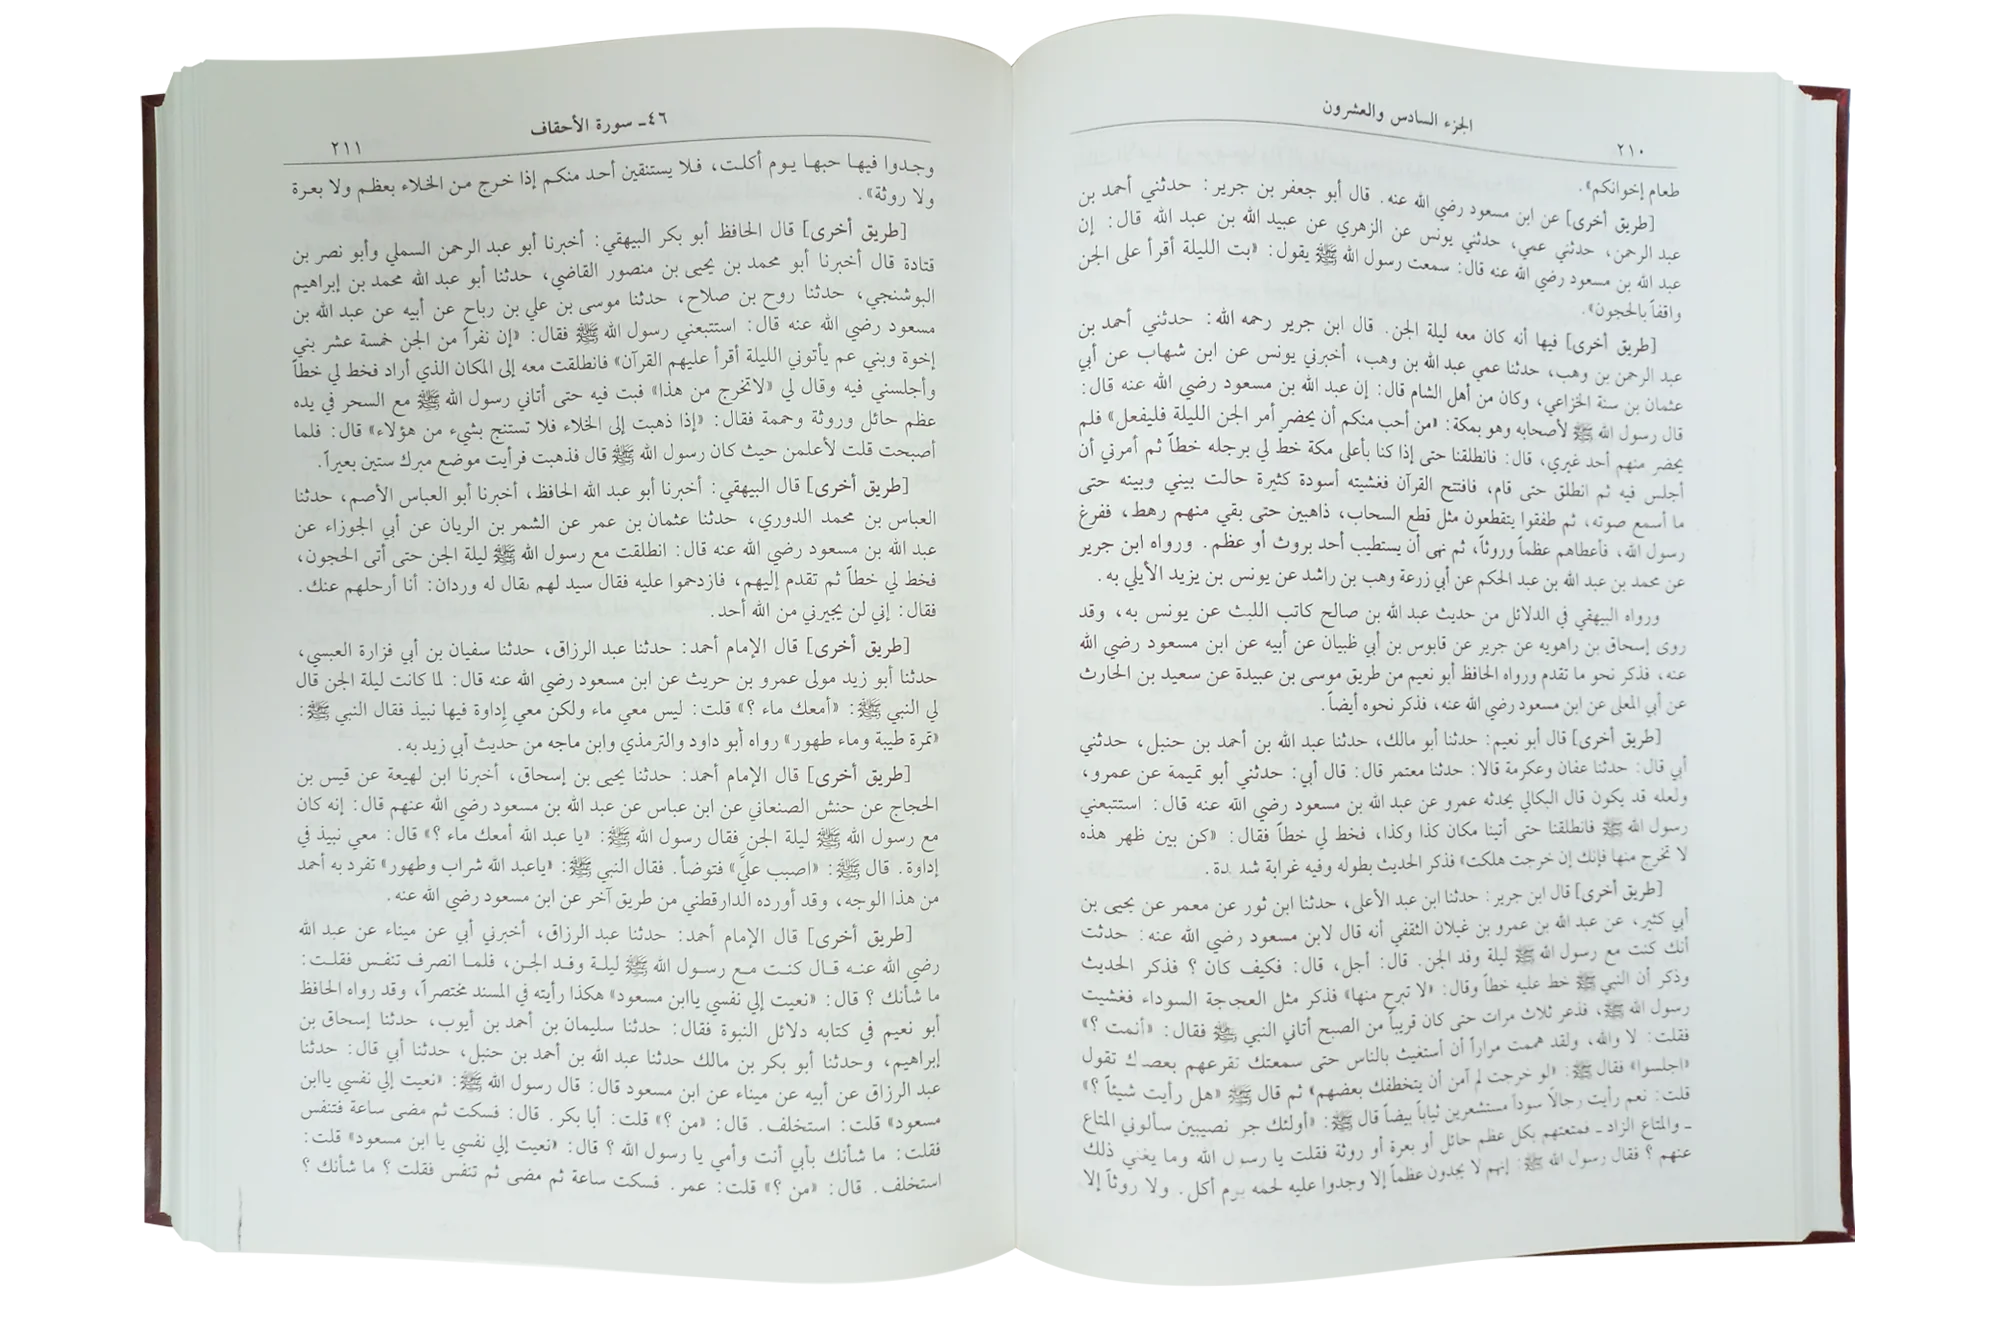 الجزء السادس والعشرون
٢١٠
طعام إخوانكم».
[طريق أخرى] عن ابن مسعود رضي الله عنه. قال أبو جعفر بن جرير: حدثني أحمد بن
عبد الرحمن، حدثني عمي، حدثني يونس عن الزهري عن عبيد الله بن عبد الله قال: إن
عبد الله بن مسعود رضي الله عنه قال: سمعت رسول الله ﷺ يقول: «بت الليلة أقرأ على الجن
واقفاً بالحجون».
[طريق أخرى] فيها أنه كان معه ليلة الجن. قال ابن جرير رحمه الله: حدثني أحمد بن
عبد الرحمن بن وهب، حدثنا عمي عبد الله بن وهب، أخبرني يونس عن ابن شهاب عن أبي
عثمان بن سنة الخزاعي، وكان من أهل الشام قال: إن عبد الله بن مسعود رضي الله عنه قال:
قال رسول الله ﷺ لأصحابه وهو بمكة: «من أحب منكم أن يحضر أمر الجن الليلة فليفعل» فلم
يحضر منهم أحد غيري، قال: فانطلقنا حتى إذا كنا بأعلى مكة خط لي برجله خطاً ثم أمرني أن
أجلس فيه ثم انطلق حتى قام، فافتتح القرآن فغشيته أسودة كثيرة حالت بيني وبينه حتى
ما أسمع صوته، ثم طفقوا يتقطعون مثل قطع السحاب، ذاهبين حتى بقي منهم رهط، ففرغ
رسول الله، فأعطاهم عظماً وروثاً، ثم نهى أن يستطيب أحد بروث أو عظم. ورواه ابن جرير
عن محمد بن عبد الله بن عبد الحكم عن أبي زرعة وهب بن راشد عن يونس بن يزيد الأيلي به.
ورواه البيهقي في الدلائل من حديث عبد الله بن صالح كاتب الليث عن يونس به، وقد
روى إسحاق بن راهويه عن جرير عن قابوس بن أبي ظبيان عن أبيه عن ابن مسعود رضي الله
عنه، فذكر نحو ما تقدم ورواه الحافظ أبو نعيم من طريق موسى بن عبيدة عن سعيد بن الحارث
عن أبي المعلى عن ابن مسعود رضي الله عنه، فذكر نحوه أيضاً.
[طريق أخرى] قال أبو نعيم: حدثنا أبو مالك، حدثنا عبد الله بن أحمد بن حنبل، حدثني
أبي قال: حدثنا عفان وعكرمة قالا: حدثنا معتمر قال: قال أبي: حدثني أبو تميمة عن عمرو،
ولعله قد يكون قال البكالي يحدثه عمرو عن عبد الله بن مسعود رضي الله عنه قال: استتبعني
رسول الله ﷺ فانطلقنا حتى أتينا مكان كذا وكذا، فخط لي خطاً فقال: «كن بين ظهر هذه
لا تخرج منها فإنك إن خرجت هلكت» فذكر الحديث بطوله وفيه غرابة شديدة.
[طريق أخرى] قال ابن جرير: حدثنا ابن عبد الأعلى، حدثنا ابن ثور عن معمر عن يحيى بن
أبي كثير، عن عبد الله بن عمرو بن غيلان الثقفي أنه قال لابن مسعود رضي الله عنه: حدثت
أنك كنت مع رسول الله ﷺ ليلة وفد الجن. قال: أجل، قال: فكيف كان ؟ فذكر الحديث
وذكر أن النبي ﷺ خط عليه خطاً وقال: «لا تبرح منها» فذكر مثل العجاجة السوداء فغشيت
رسول الله ﷺ، فذعر ثلاث مرات حتى كان قريباً من الصبح أتاني النبي ﷺ فقال: «أنمت ؟»
فقلت: لا والله، ولقد هممت مراراً أن أستغيث بالناس حتى سمعتك تقرعهم بعصاك تقول
«اجلسوا» فقال ﷺ: «لو خرجت لم آمن أن يتخطفك بعضهم» ثم قال ﷺ «هل رأيت شيئاً ؟»
قلت: نعم رأيت رجالاً سوداً مستشعرين ثياباً بيضاً قال ﷺ: «أولئك جن نصيبين سألوني المتاع
ـ والمتاع الزاد ـ فمتعتهم بكل عظم حائل أو بعرة أو روثة فقلت يا رسول الله وما يغني ذلك
عنهم ؟ فقال رسول الله ﷺ: إنهم لا يجدون عظماً إلا وجدوا عليه لحمه يوم أكل. ولا روثاً إلا
٤٦ـ سورة الأحقاف
٢١١
وجدوا فيها حبها يوم أكلت، فلا يستنقين أحد منكم إذا خرج من الخلاء بعظم ولا بعرة
ولا روثة».
[طريق أخرى] قال الحافظ أبو بكر البيهقي: أخبرنا أبو عبد الرحمن السملي وأبو نصر بن
قتادة قال أخبرنا أبو محمد بن يحيى بن منصور القاضي، حدثنا أبو عبد الله محمد بن إبراهيم
البوشنجي، حدثنا روح بن صلاح، حدثنا موسى بن علي بن رباح عن أبيه عن عبد الله بن
مسعود رضي الله عنه قال: استتبعني رسول الله ﷺ فقال: «إن نفراً من الجن خمسة عشر بني
إخوة وبني عم يأتوني الليلة أقرأ عليهم القرآن» فانطلقت معه إلى المكان الذي أراد فخط لي خطاً
وأجلسني فيه وقال لي «لاتخرج من هذا» فبت فيه حتى أتاني رسول الله ﷺ مع السحر في يده
عظم حائل وروثة وحممة فقال: «إذا ذهبت إلى الخلاء فلا تستنج بشيء من هؤلاء» قال: فلما
أصبحت قلت لأعلمن حيث كان رسول الله ﷺ قال فذهبت فرأيت موضع مبرك ستين بعيراً.
[طريق أخرى] قال البيهقي: أخبرنا أبو عبد الله الحافظ، أخبرنا أبو العباس الأصم، حدثنا
العباس بن محمد الدوري، حدثنا عثمان بن عمر عن الشمر بن الريان عن أبي الجوزاء عن
عبد الله بن مسعود رضي الله عنه قال: انطلقت مع رسول الله ﷺ ليلة الجن حتى أتى الحجون،
فخط لي خطاً ثم تقدم إليهم، فازدحموا عليه فقال سيد لهم يقال له وردان: أنا أرحلهم عنك.
فقال: إني لن يجيرني من الله أحد.
[طريق أخرى] قال الإمام أحمد: حدثنا عبد الرزاق، حدثنا سفيان بن أبي فزارة العبسي،
حدثنا أبو زيد مولى عمرو بن حريث عن ابن مسعود رضي الله عنه قال: لما كانت ليلة الجن قال
لي النبي ﷺ: «أمعك ماء ؟» قلت: ليس معي ماء ولكن معي إداوة فيها نبيذ فقال النبي ﷺ:
«تمرة طيبة وماء طهور» رواه أبو داود والترمذي وابن ماجه من حديث أبي زيد به.
[طريق أخرى] قال الإمام أحمد: حدثنا يحيى بن إسحاق، أخبرنا ابن لهيعة عن قيس بن
الحجاج عن حنش الصنعاني عن ابن عباس عن عبد الله بن مسعود رضي الله عنهم قال: إنه كان
مع رسول الله ﷺ ليلة الجن فقال رسول الله ﷺ: «يا عبد الله أمعك ماء ؟» قال: معي نبيذ في
إداوة. قال ﷺ: «اصبب عليَّ» فتوضأ. فقال النبي ﷺ: «ياعبد الله شراب وطهور» تفرد به أحمد
من هذا الوجه، وقد أورده الدارقطني من طريق آخر عن ابن مسعود رضي الله عنه.
[طريق أخرى] قال الإمام أحمد: حدثنا عبد الرزاق، أخبرني أبي عن ميناء عن عبد الله
رضي الله عنه قال كنت مع رسول الله ﷺ ليلة وفد الجن، فلما انصرف تنفس فقلت:
ما شأنك ؟ قال: «نعيت إلي نفسي ياابن مسعود» هكذا رأيته في المسند مختصراً، وقد رواه الحافظ
أبو نعيم في كتابه دلائل النبوة فقال: حدثنا سليمان بن أحمد بن أيوب، حدثنا إسحاق بن
إبراهيم، وحدثنا أبو بكر بن مالك حدثنا عبد الله بن أحمد بن حنبل، حدثنا أبي قال: حدثنا
عبد الرزاق عن أبيه عن ميناء عن ابن مسعود قال: قال رسول الله ﷺ: «نعيت إلي نفسي ياابن
مسعود» قلت: استخلف. قال: «من ؟» قلت: أبا بكر. قال: فسكت ثم مضى ساعة فتنفس
فقلت: ما شأنك بأبي أنت وأمي يا رسول الله ؟ قال: «نعيت إلي نفسي يا ابن مسعود» قلت:
استخلف. قال: «من ؟» قلت: عمر. فسكت ساعة ثم مضى ثم تنفس فقلت ؟ ما شأنك ؟